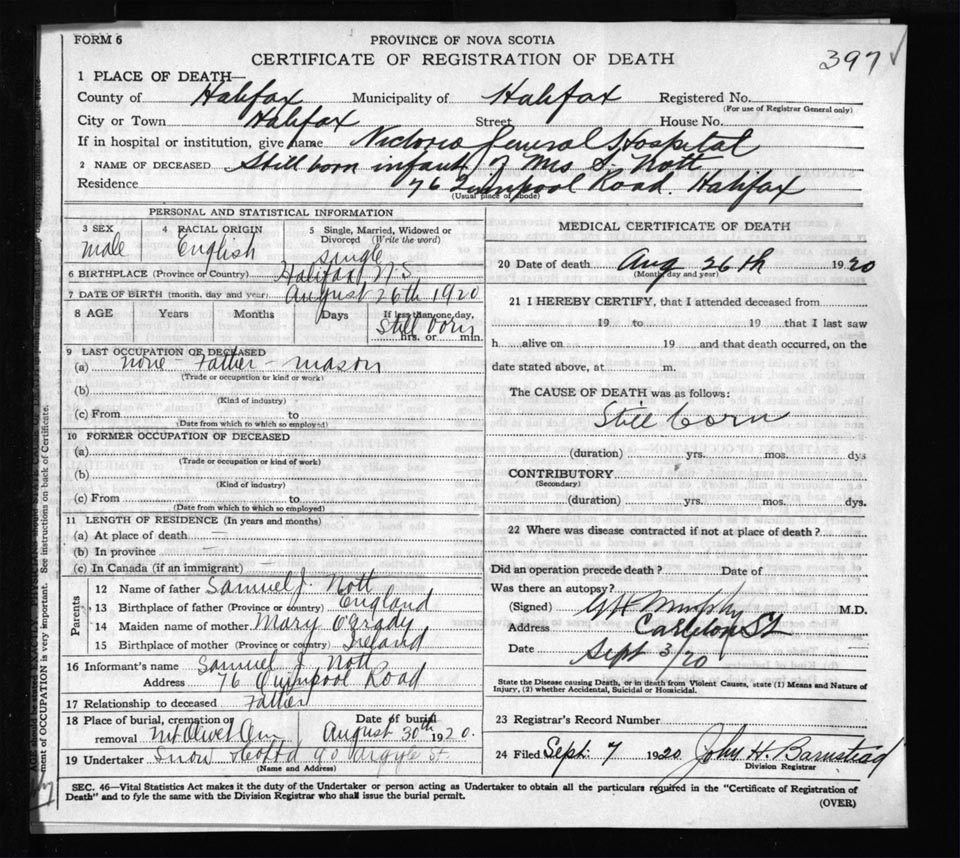 FORM 6
PROVINCE OF NOVA SCOTIA
CERTIFICATE OF REGISTRATION OF DEATH
397
1 PLACE OF DEATH—
County of Halifax Municipality of Halifax Registered No.
(For use of Registrar General only)
City or Town Halifax Street House No.
If in hospital or institution, give name Victoria General Hospital
2 NAME OF DECEASED Still born infant of Mrs S. Nott
Residence 76 Quinpool Road. Halifax
(Usual place of abode)
PERSONAL AND STATISTICAL INFORMATION
3 SEX 4 RACIAL ORIGIN 5 Single, Married, Widowed or Divorced (Write the word)
male English Single
6 BIRTHPLACE (Province or Country) Halifax N.S.
7 DATE OF BIRTH (month, day and year) August 26th 1920
8 AGE Years Months Days If less than one day,
Still born
hrs. or min.
9 LAST OCCUPATION OF DECEASED
(a) none - Father - mason
(Trade or occupation or kind or work)
(b)
(Kind of industry)
(c) From to
(Date from which to which so employed)
10 FORMER OCCUPATION OF DECEASED
(a)
(Trade or occupation or kind of work)
(b)
(Kind of industry)
(c) From to
(Date from which to which so employed)
11 LENGTH OF RESIDENCE (In years and months)
(a) At place of death —
(b) In province —
(c) In Canada (if an immigrant) —
Parents
12 Name of father Samuel J. Nott
13 Birthplace of father (Province or country) England
14 Maiden name of mother Mary O'Grady
15 Birthplace of mother (Province or country) Ireland
16 Informant's name Samuel J. Nott
Address 76 Quinpool Road
17 Relationship to deceased Father
18 Place of burial, cremation or removal Mt Olivet Cem Date of burial August 30th 1920.
19 Undertaker Snow 90 Argyle St.
(Name and Address)
MEDICAL CERTIFICATE OF DEATH
20 Date of death Aug 26th 1920
(Month, day and year)
21 I HEREBY CERTIFY, that I attended deceased from
19 to 19 that I last saw
h alive on 19 and that death occurred, on the
date stated above, at m.
The CAUSE OF DEATH was as follows:
Still born
(duration) yrs. mos. dys
CONTRIBUTORY
(Secondary)
(duration) yrs. mos. dys.
22 Where was disease contracted if not at place of death?
Did an operation precede death? Date of
Was there an autopsy?
(Signed) G H Murphy M.D.
Address Carleton St
Date Sept 3/20
State the Disease causing Death, or in death from Violent Causes, state (1) Means and Nature of Injury, (2) whether Accidental, Suicidal or Homicidal.
23 Registrar's Record Number
24 Filed Sept. 7 1920 John H. Barnstead
Division Registrar
SEC. 46—Vital Statistics Act makes it the duty of the Undertaker or person acting as Undertaker to obtain all the particulars required in the "Certificate of Registration of
Death" and to fyle the same with the Division Registrar who shall issue the burial permit.
(OVER)
ment of OCCUPATION is very important. See instructions on back of Certificate.